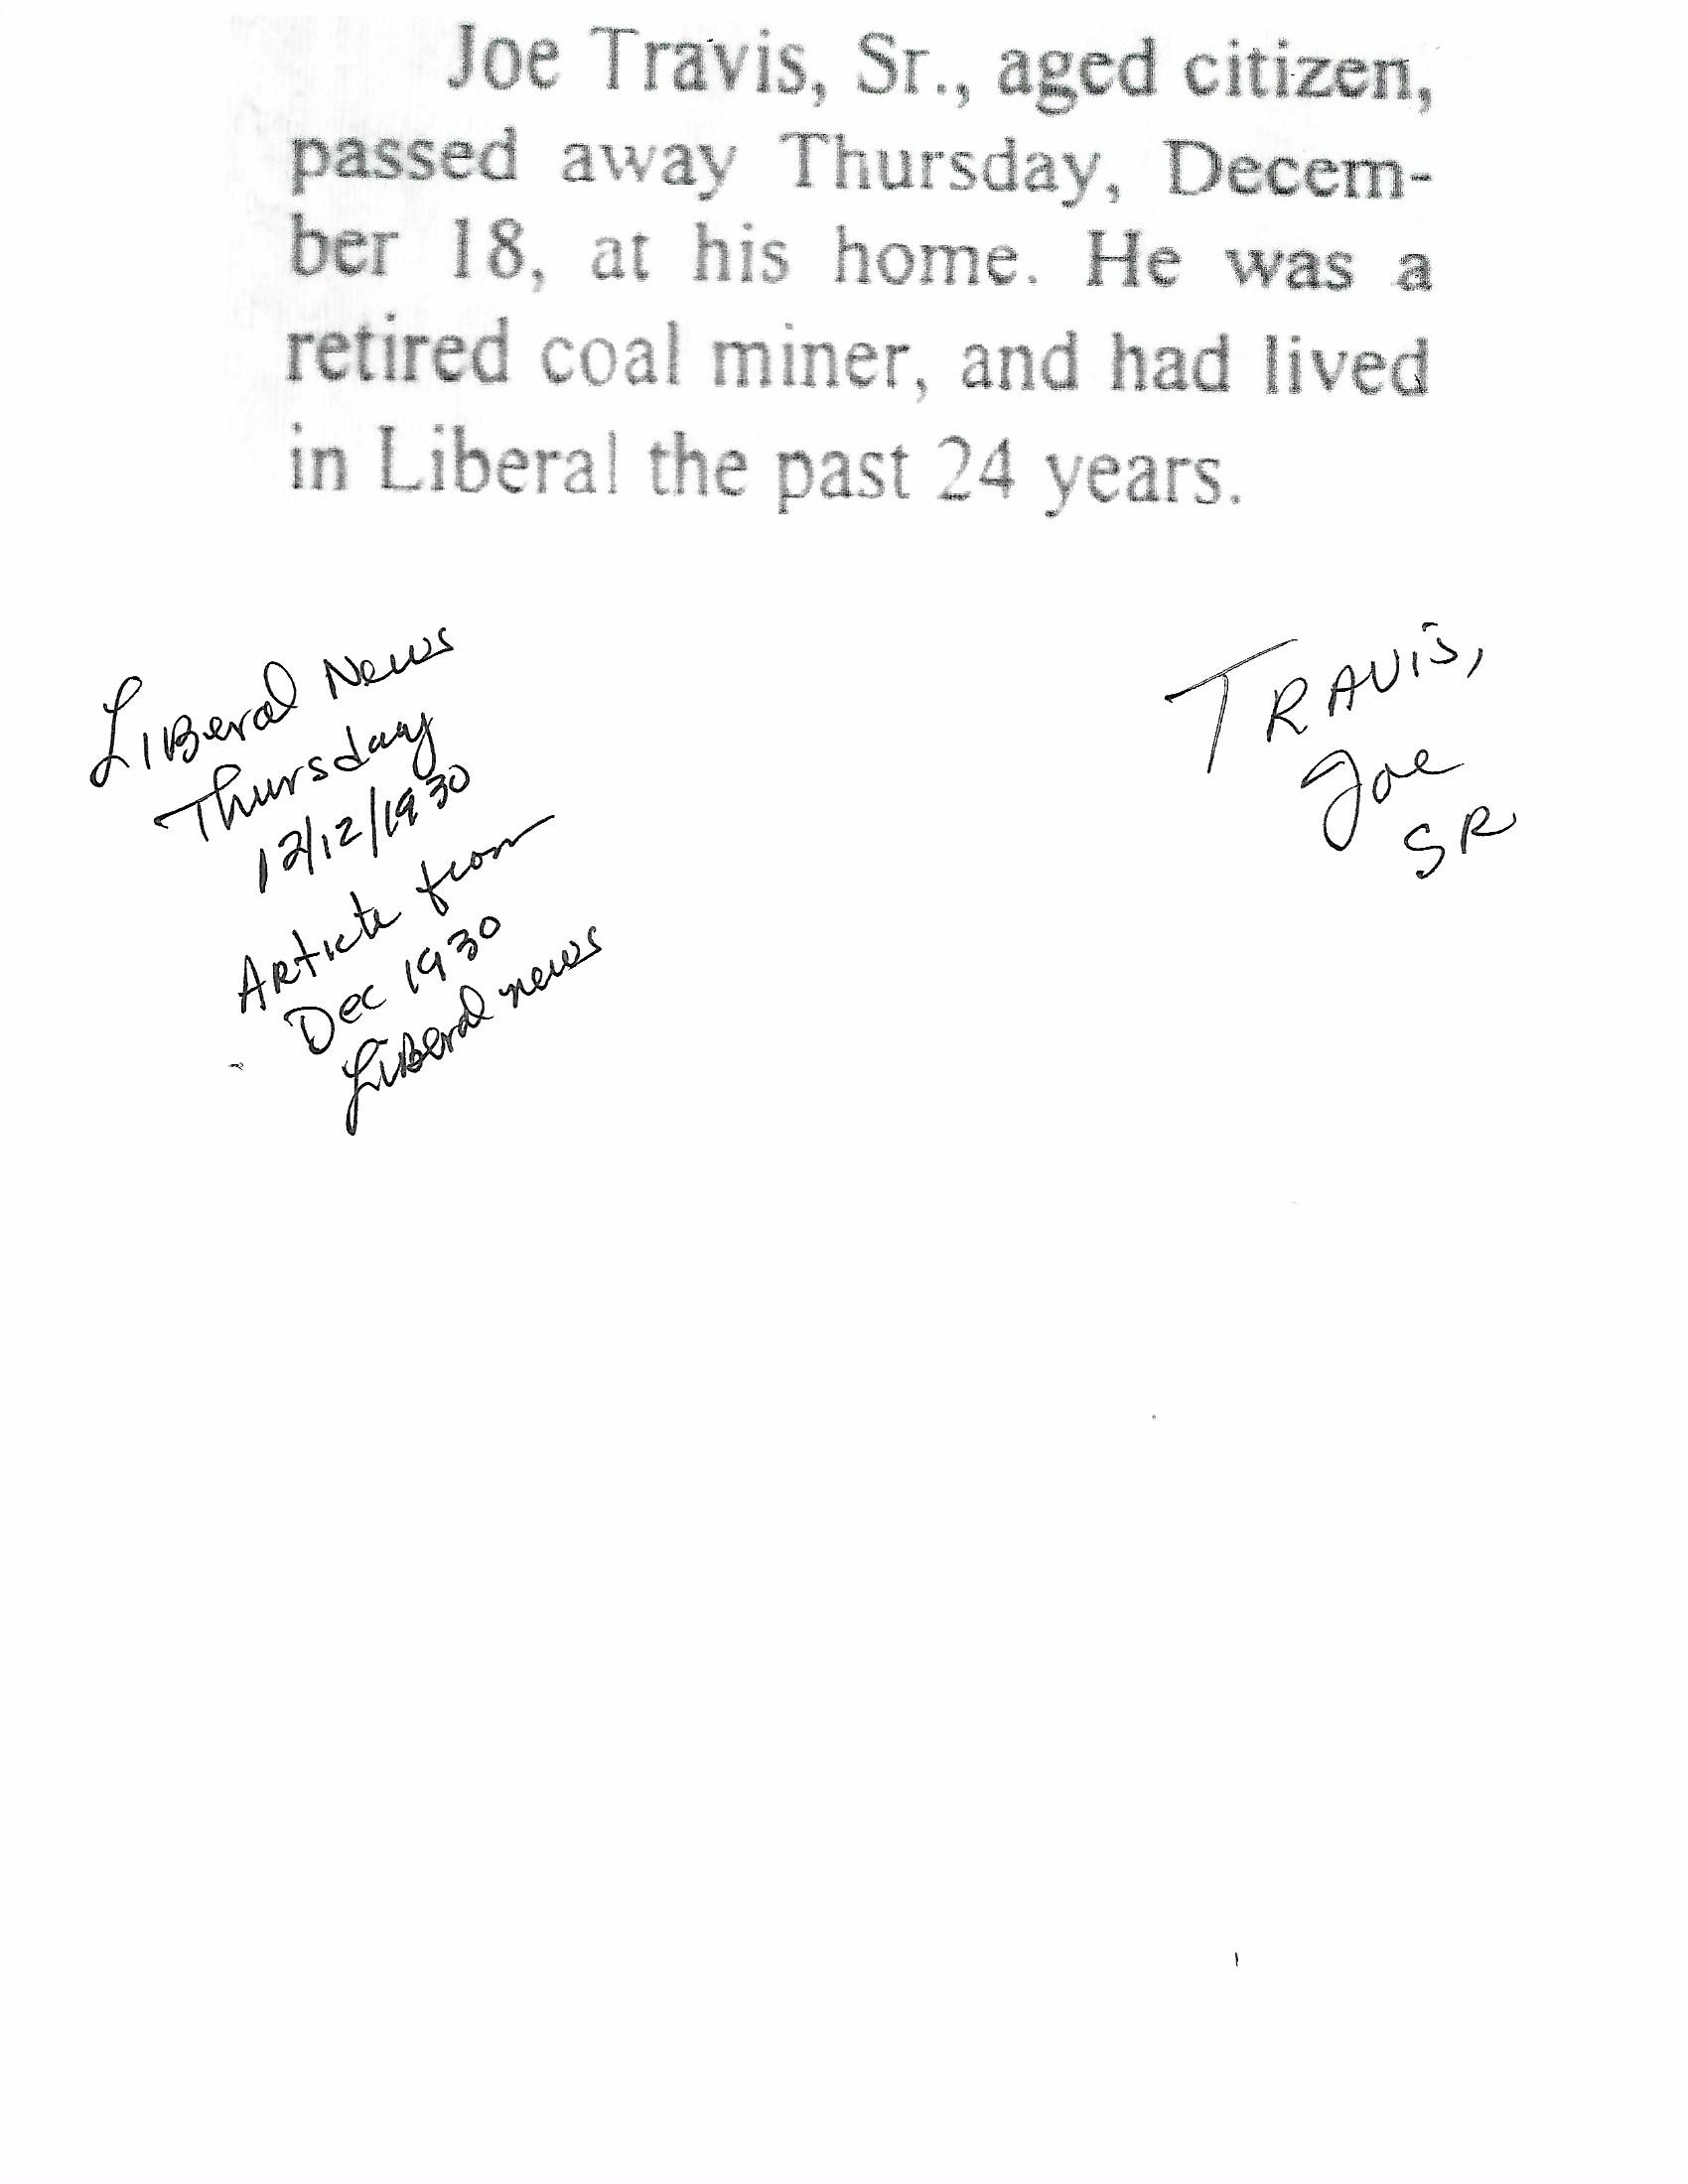 Joe Travis, Sr., aged citizen,
passed away Thursday, Decem-
ber 18, at his home. He was a
retired coal miner, and had lived
in Liberal the past 24 years.
Liberal News
Thursday
12/12/1930
Article from
Dec 1930
Liberal news
TRAVIS,
Joe
SR